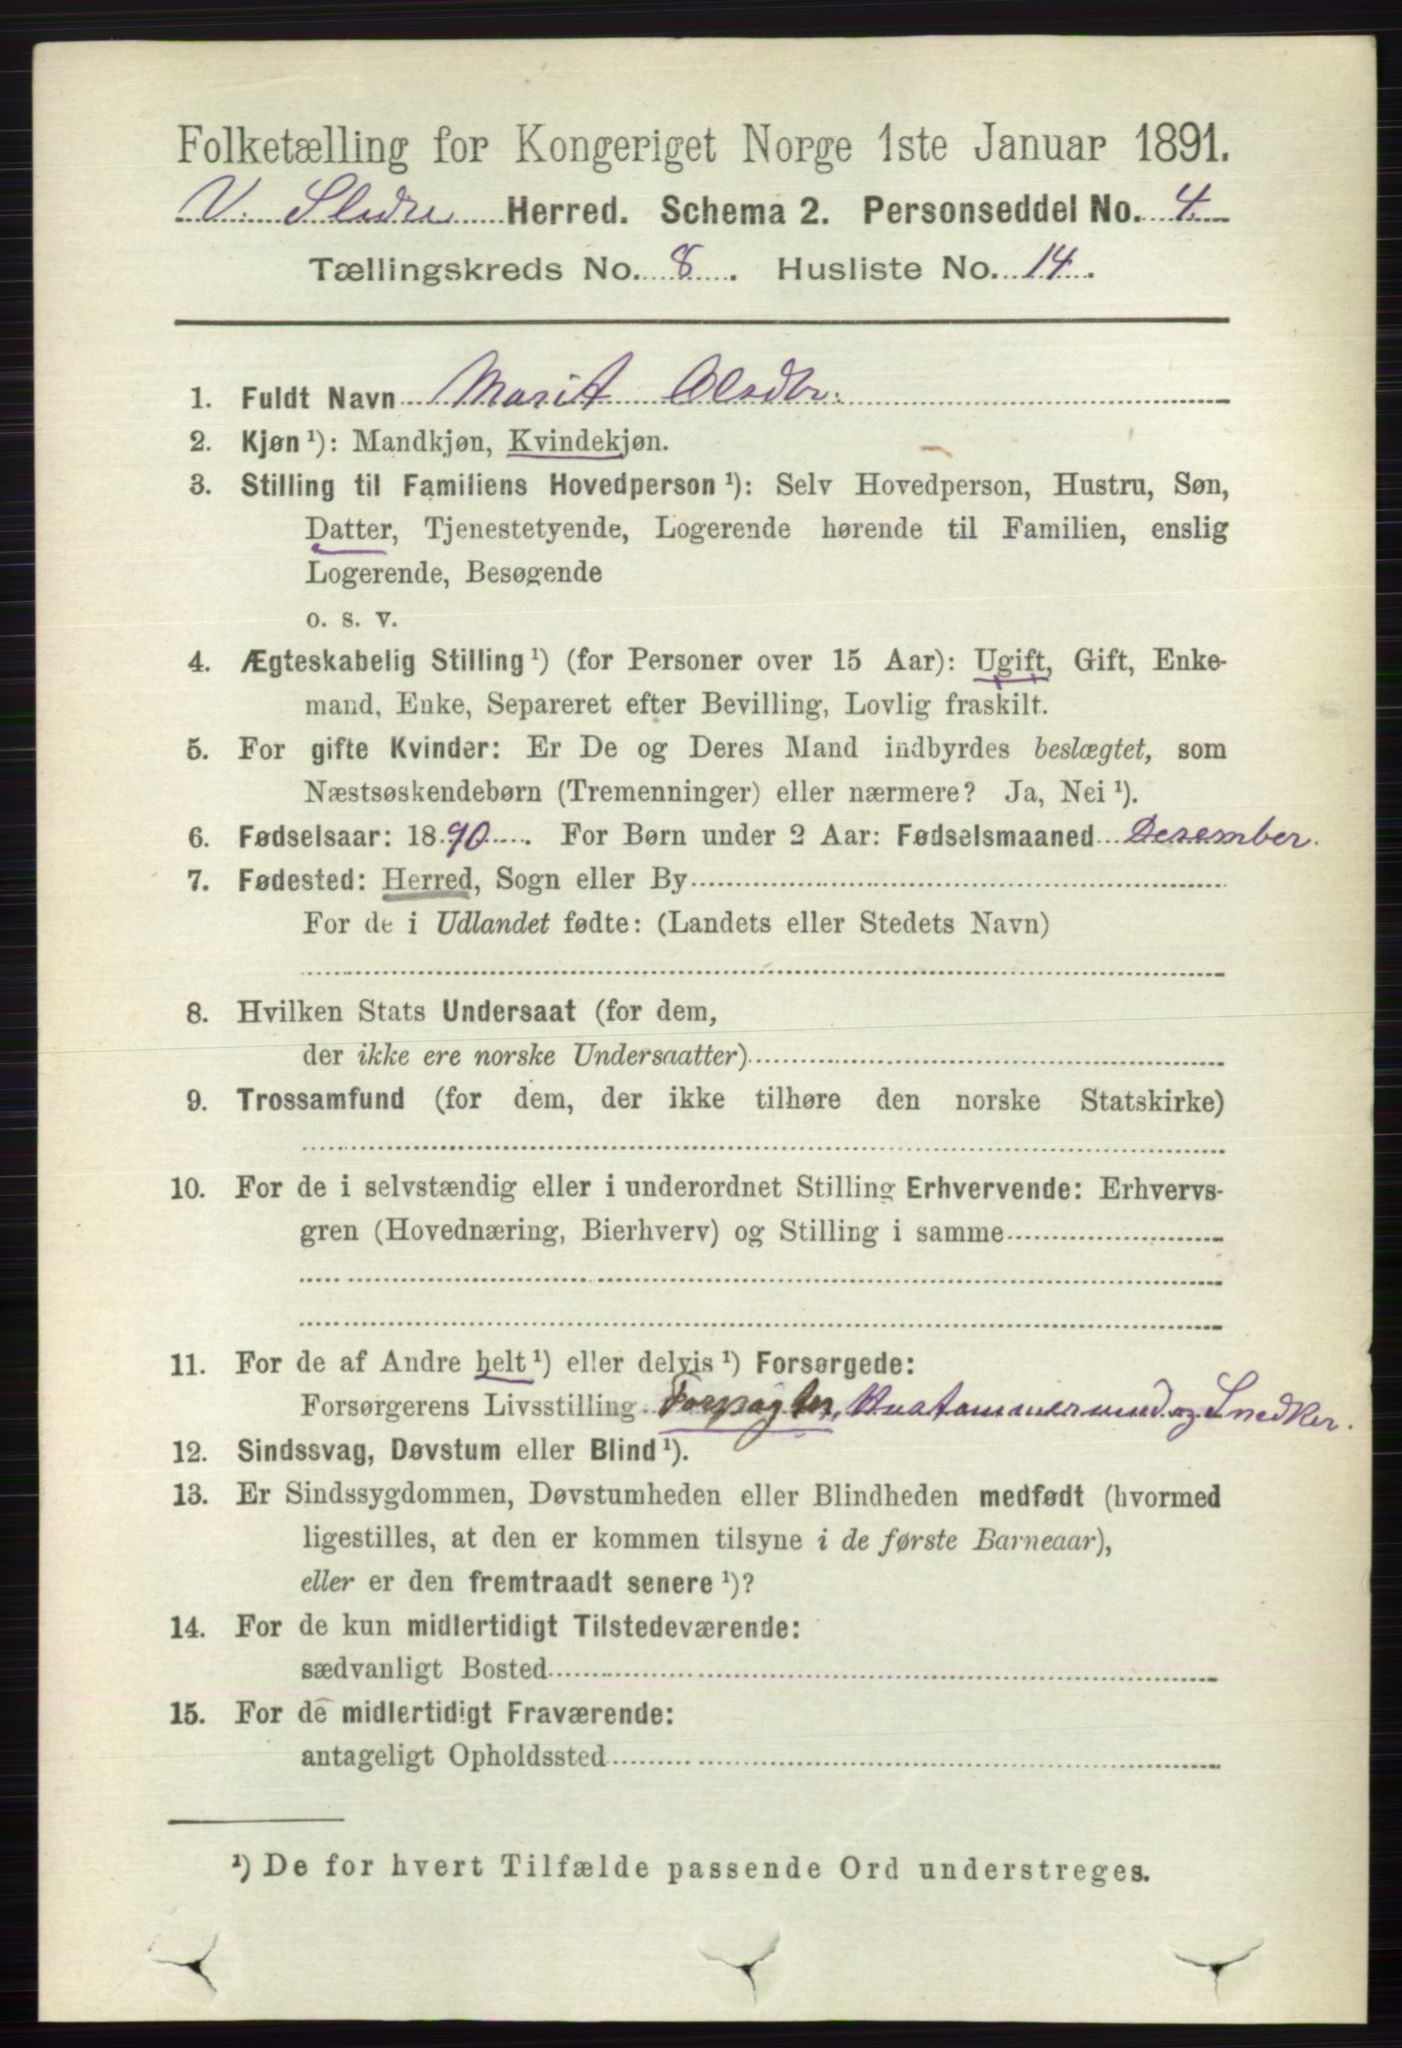 Folketælling for Kongeriget Norge 1ste Januar 1891.
V. Slidre Herred. Schema 2. Personseddel No. 4
Tællingskreds No. 8. Husliste No. 14.
1. Fuldt Navn Marit Olsdtr.
2. Kjøn ¹): Mandkjøn, Kvindekjøn.
3. Stilling til Familiens Hovedperson ¹): Selv Hovedperson, Hustru, Søn,
Datter, Tjenestetyende, Logerende hørende til Familien, enslig
Logerende, Besøgende
o. s. v.
4. Ægteskabelig Stilling ¹) (for Personer over 15 Aar): Ugift, Gift, Enke-
mand, Enke, Separeret efter Bevilling, Lovlig fraskilt.
5. For gifte Kvinder: Er De og Deres Mand indbyrdes beslægtet, som
Næstsøskendebørn (Tremenninger) eller nærmere? Ja, Nei ¹).
6. Fødselsaar: 1890. For Børn under 2 Aar: Fødselsmaaned Desember.
7. Fødested: Herred, Sogn eller By
For de i Udlandet fødte: (Landets eller Stedets Navn)
8. Hvilken Stats Undersaat (for dem,
der ikke ere norske Undersaatter)
9. Trossamfund (for dem, der ikke tilhøre den norske Statskirke)
10. For de i selvstændig eller i underordnet Stilling Erhvervende: Erhvervs-
gren (Hovednæring, Bierhverv) og Stilling i samme
11. For de af Andre helt ¹) eller delvis ¹) Forsørgede:
Forsørgerens Livsstilling Forpagter, og Snedker.
12. Sindssvag, Døvstum eller Blind ¹).
13. Er Sindssygdommen, Døvstumheden eller Blindheden medfødt (hvormed
ligestilles, at den er kommen tilsyne i de første Barneaar),
eller er den fremtraadt senere ¹)?
14. For de kun midlertidigt Tilstedeværende:
sædvanligt Bosted
15. For de midlertidigt Fraværende:
antageligt Opholdssted
¹) De for hvert Tilfælde passende Ord understreges.